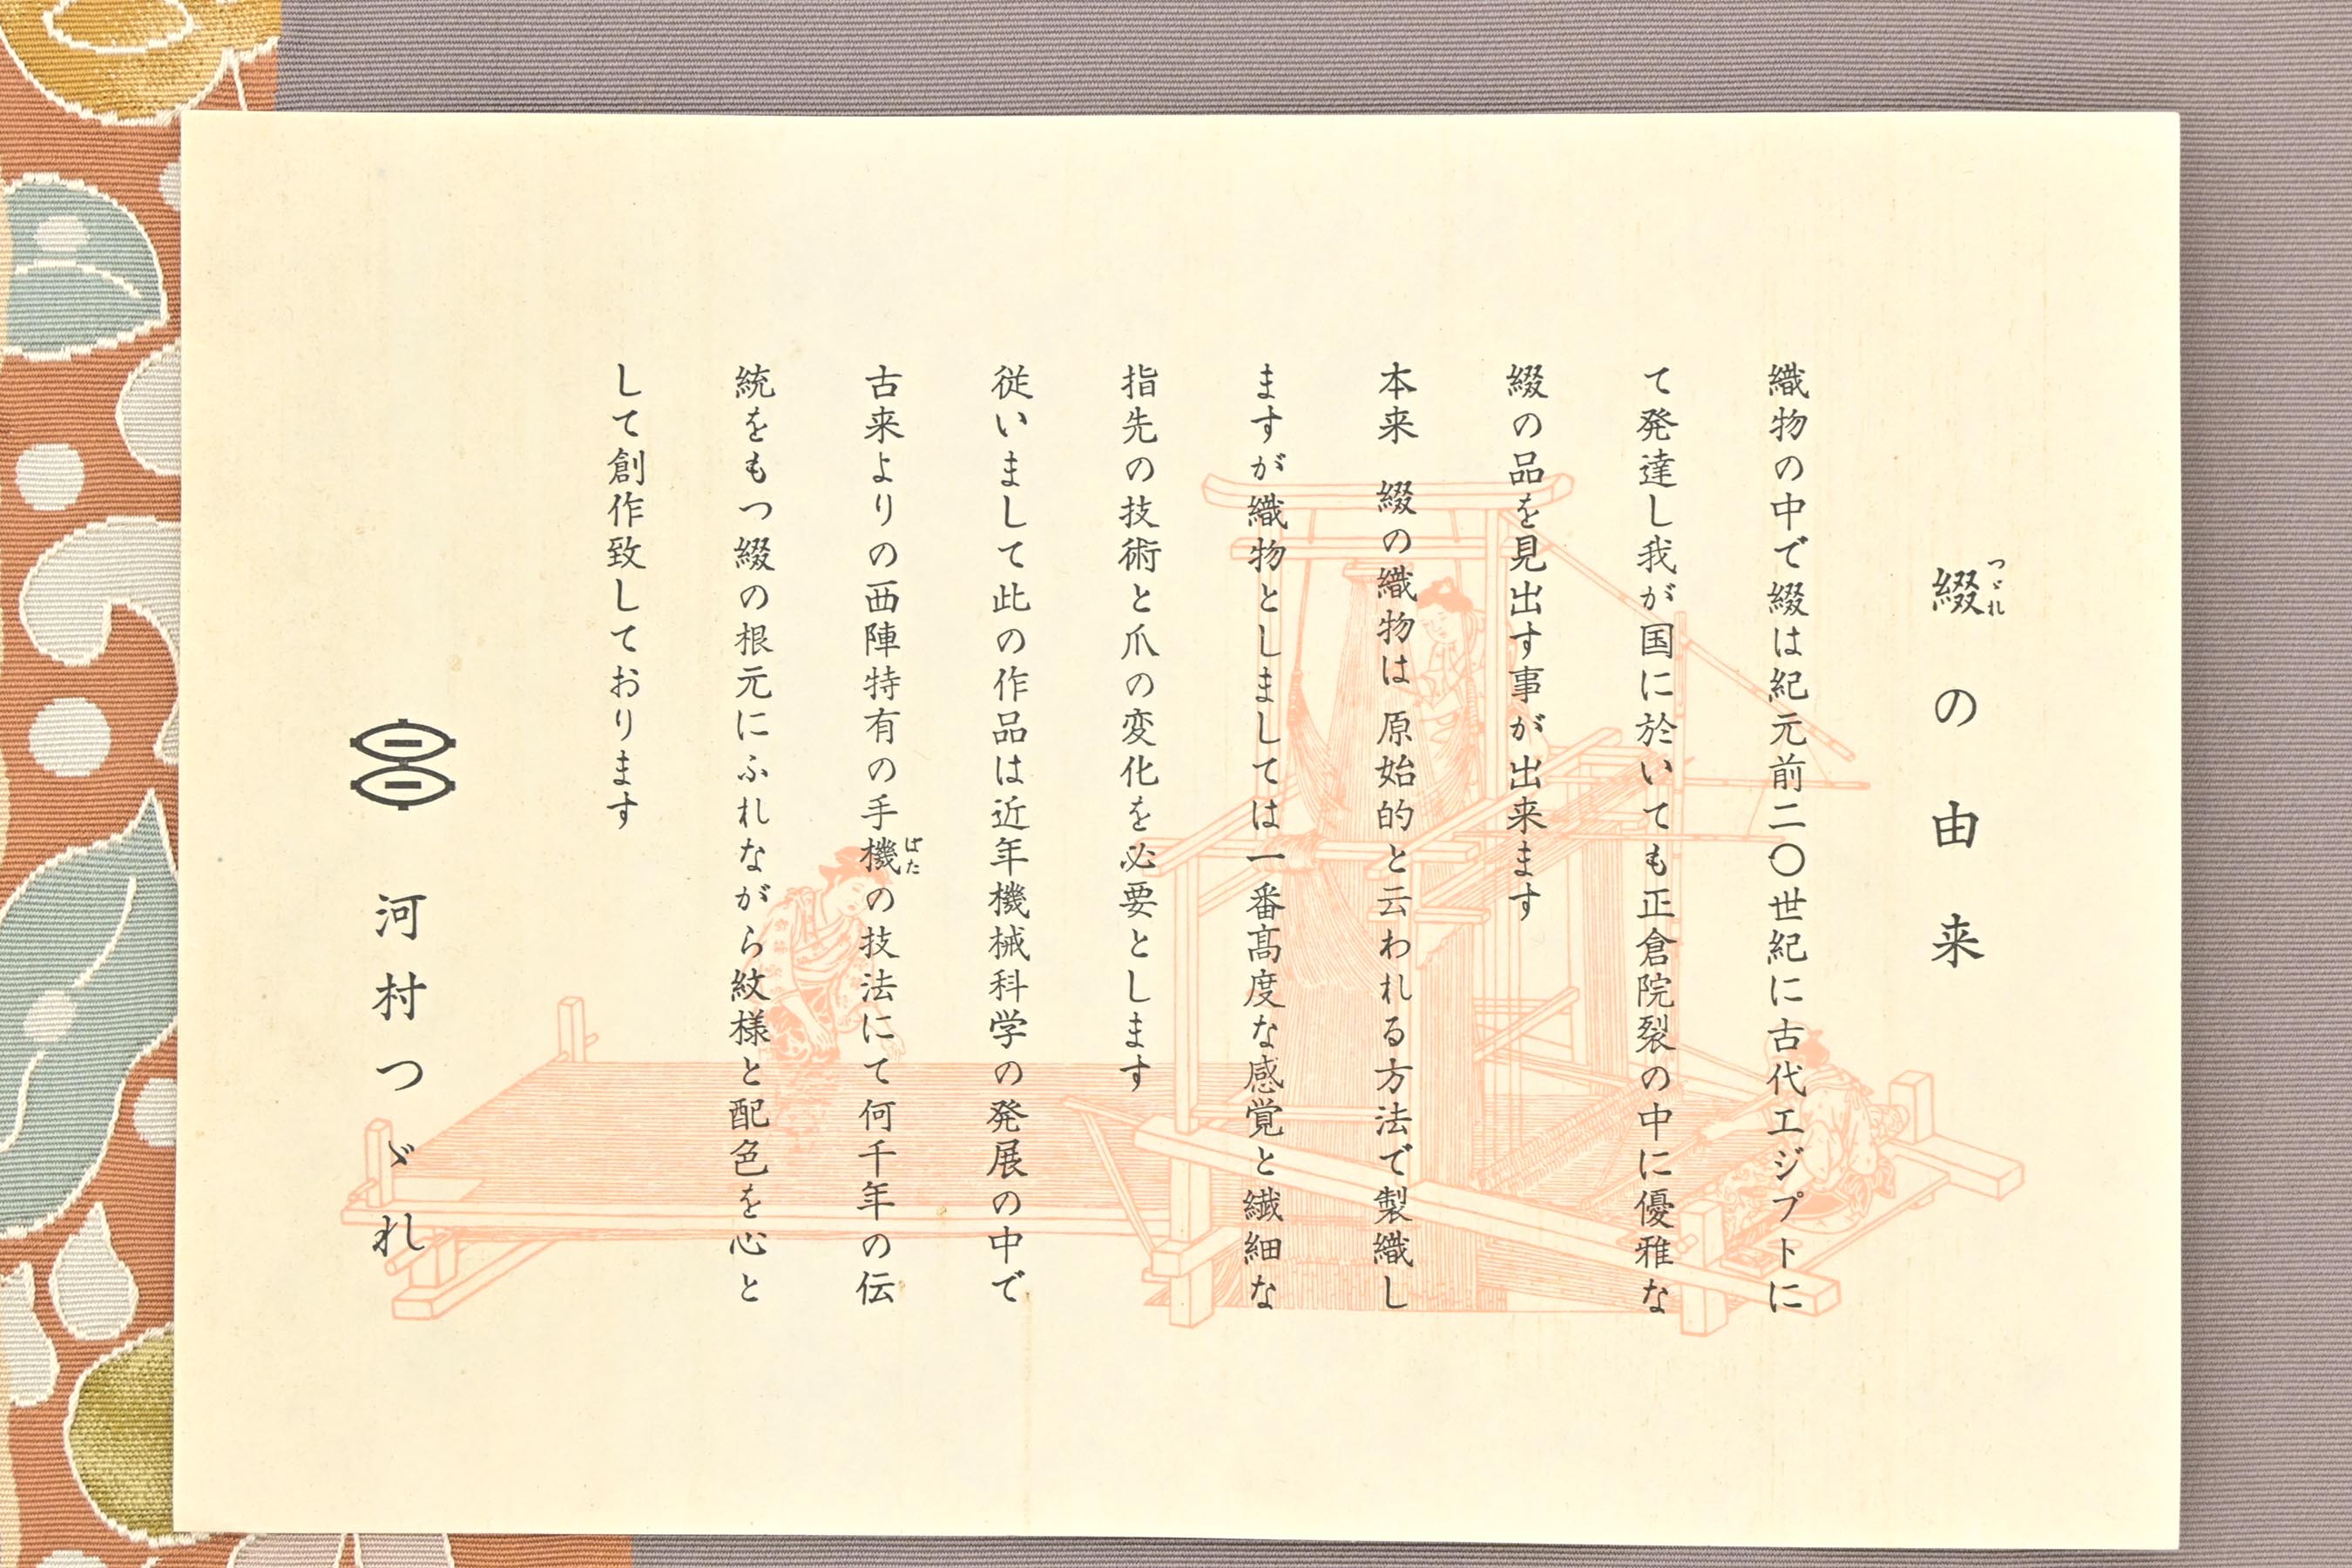 綴の由来
つゞれ
織物の中で綴は紀元前二〇世紀に古代エジプトに
て発達し我が国に於いても正倉院裂の中に優雅な
綴の品を見出す事が出来ます
本来　綴の織物は　原始的と云われる方法で製織し
ますが織物としましては一番高度な感覚と繊細な
指先の技術と爪の変化を必要とします
従いまして此の作品は近年機械科学の発展の中で
古来よりの西陣特有の手機の技法にて何千年の伝
ばた
統をもつ綴の根元にふれながら紋様と配色を心と
して創作致しております
河村つゞれ